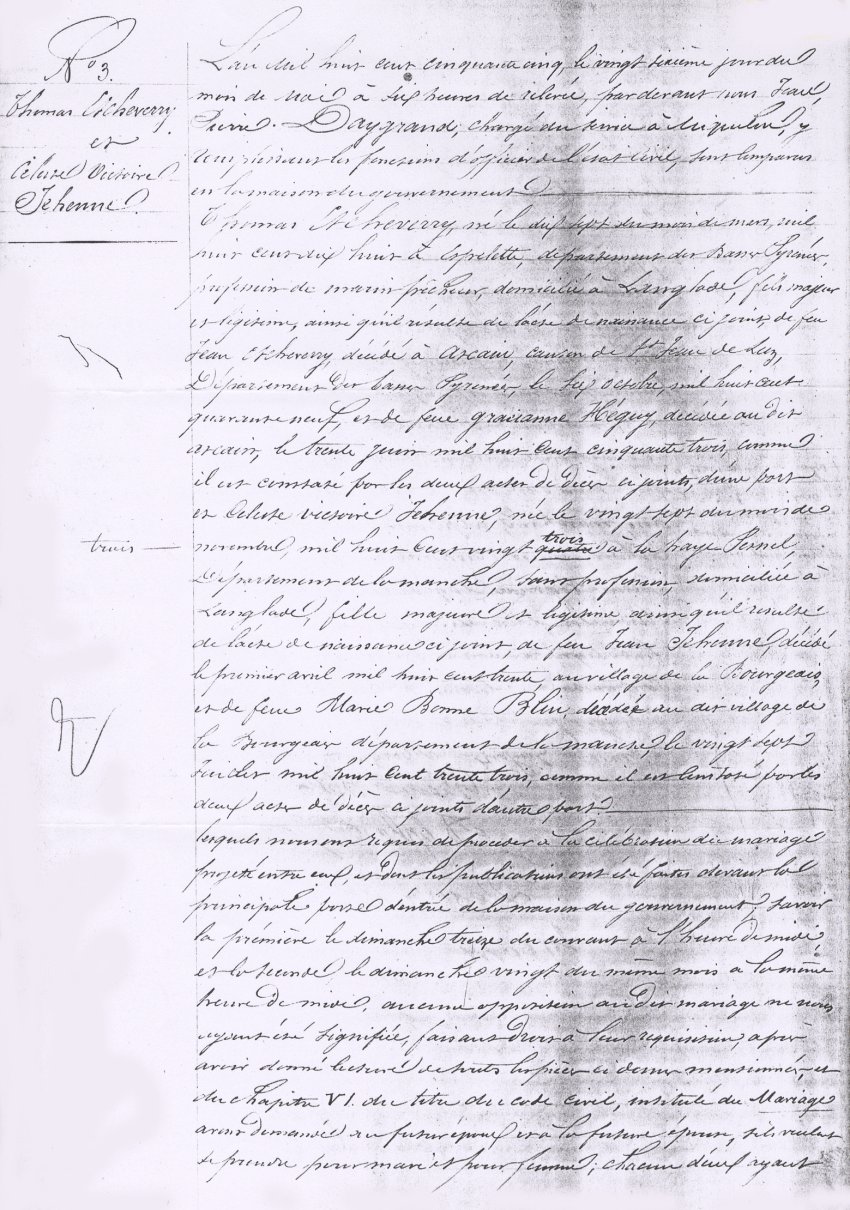 N° 3.
Thomas Etcheverry
et
Céleste Victoire
Jehenne.
L'an mil huit cent cinquante cinq, le vingt sixième jour du
mois de mai à six heures de relevée, par devant nous Jean
Pierre Daygrand, chargé du service à Miquelon, y
remplissant les fonctions d'officier de l'état civil, sont comparus
en la maison du gouvernement
Thomas Etcheverry, né le dix sept du mois de mars, mil
huit cent dix huit à Espelette, département des Basses Pyrénées,
profession de marin pêcheur, domicilié à Langlade, fils majeur
et légitime, ainsi qu'il résulte de l'acte de naissance ci joint, de feu
Jean Etcheverry, décédé à Ascain, canton de St Jean de Luz,
Département des basses Pyrénées, le six octobre, mil huit cent
quarante neuf, et de feue gracianne Héguy, décédée au dit
ascain, le trente juin mil huit cent cinquante trois, comme
il est constaté par les deux actes de décès ci joints, d'une part
et Céleste victoire Jehenne, née le vingt sept du mois de
trois
novembre, mil huit cent vingt quatre trois à la haye Pesnel,
Département de la manche, sans profession, domiciliée à
Langlade, fille majeure et légitime, ainsi qu'il résulte
de l'acte de naissance ci joint, de feu Jean Jehenne, décédé
le premier avril mil huit cent trente, au village de la Bourgeais,
et de feue Marie Bonne Blin, décédée au dit village de
la Bourgeais département de la manche, le vingt sept
Juillet mil huit cent trente trois, comme il est constaté par les
deux actes de décès ci joints d'autre part
lesquels nous ont requis de procéder à la célébration du mariage
projeté entre eux, et dont les publications ont été faites devant la
principale porte d'entrée de la maison du gouvernement; savoir
la première le dimanche treize du courant à l'heure de midi,
et la seconde, le dimanche vingt du même mois à la même
heure de midi. aucune opposition au dit mariage ne nous
ayant été signifiée, faisant droit à leur réquisition, après
avoir donné lecture de toutes les pièces ci dessus mentionnées, et
du chapitre VI. du titre du code civil, intitulé du Mariage
avons demandé au futur époux et à la future épouse, s'ils veulent
se prendre pour mari et pour femme; chacun d'eux ayant